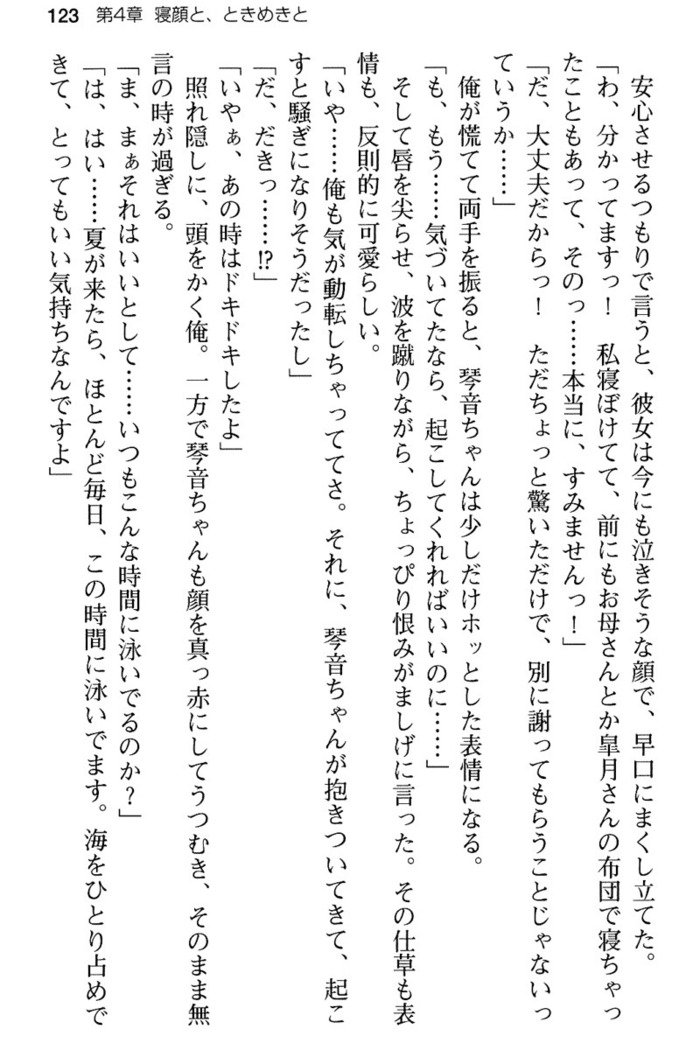 123 第4章 寝顔と、ときめきと
安心させるつもりで言うと、彼女は今にも泣きそうな顔で、早口にまくし立てた。
「わ、分かってますっ！ 私寝ぼけてて、前にもお母さんとか皐月さんの布団で寝ちゃっ
たこともあって、そのっ……本当に、すみませんっ！」
「だ、大丈夫だからっ！ ただちょっと驚いただけで、別に謝ってもらうことじゃないっ
ていうか……」
俺が慌てて両手を振ると、琴音ちゃんは少しだけホッとした表情になる。
「も、もう……気づいてたなら、起こしてくれればいいのに……」
そして唇を尖らせ、波を蹴りながら、ちょっぴり恨みがましげに言った。その仕草も表
情も、反則的に可愛らしい。
「いや……俺も気が動転しちゃっててさ。それに、琴音ちゃんが抱きついてきて、起こ
すと騒ぎになりそうだったし」
「だ、だきっ……⁉」
「いやぁ、あの時はドキドキしたよ」
照れ隠しに、頭をかく俺。一方で琴音ちゃんも顔を真っ赤にしてうつむき、そのまま無
言の時が過ぎる。
「ま、まぁそれはいいとして……いつもこんな時間に泳いでるのか？」
「は、はい……夏が来たら、ほとんど毎日、この時間に泳いでます。海をひとり占めで
きて、とってもいい気持ちなんですよ」